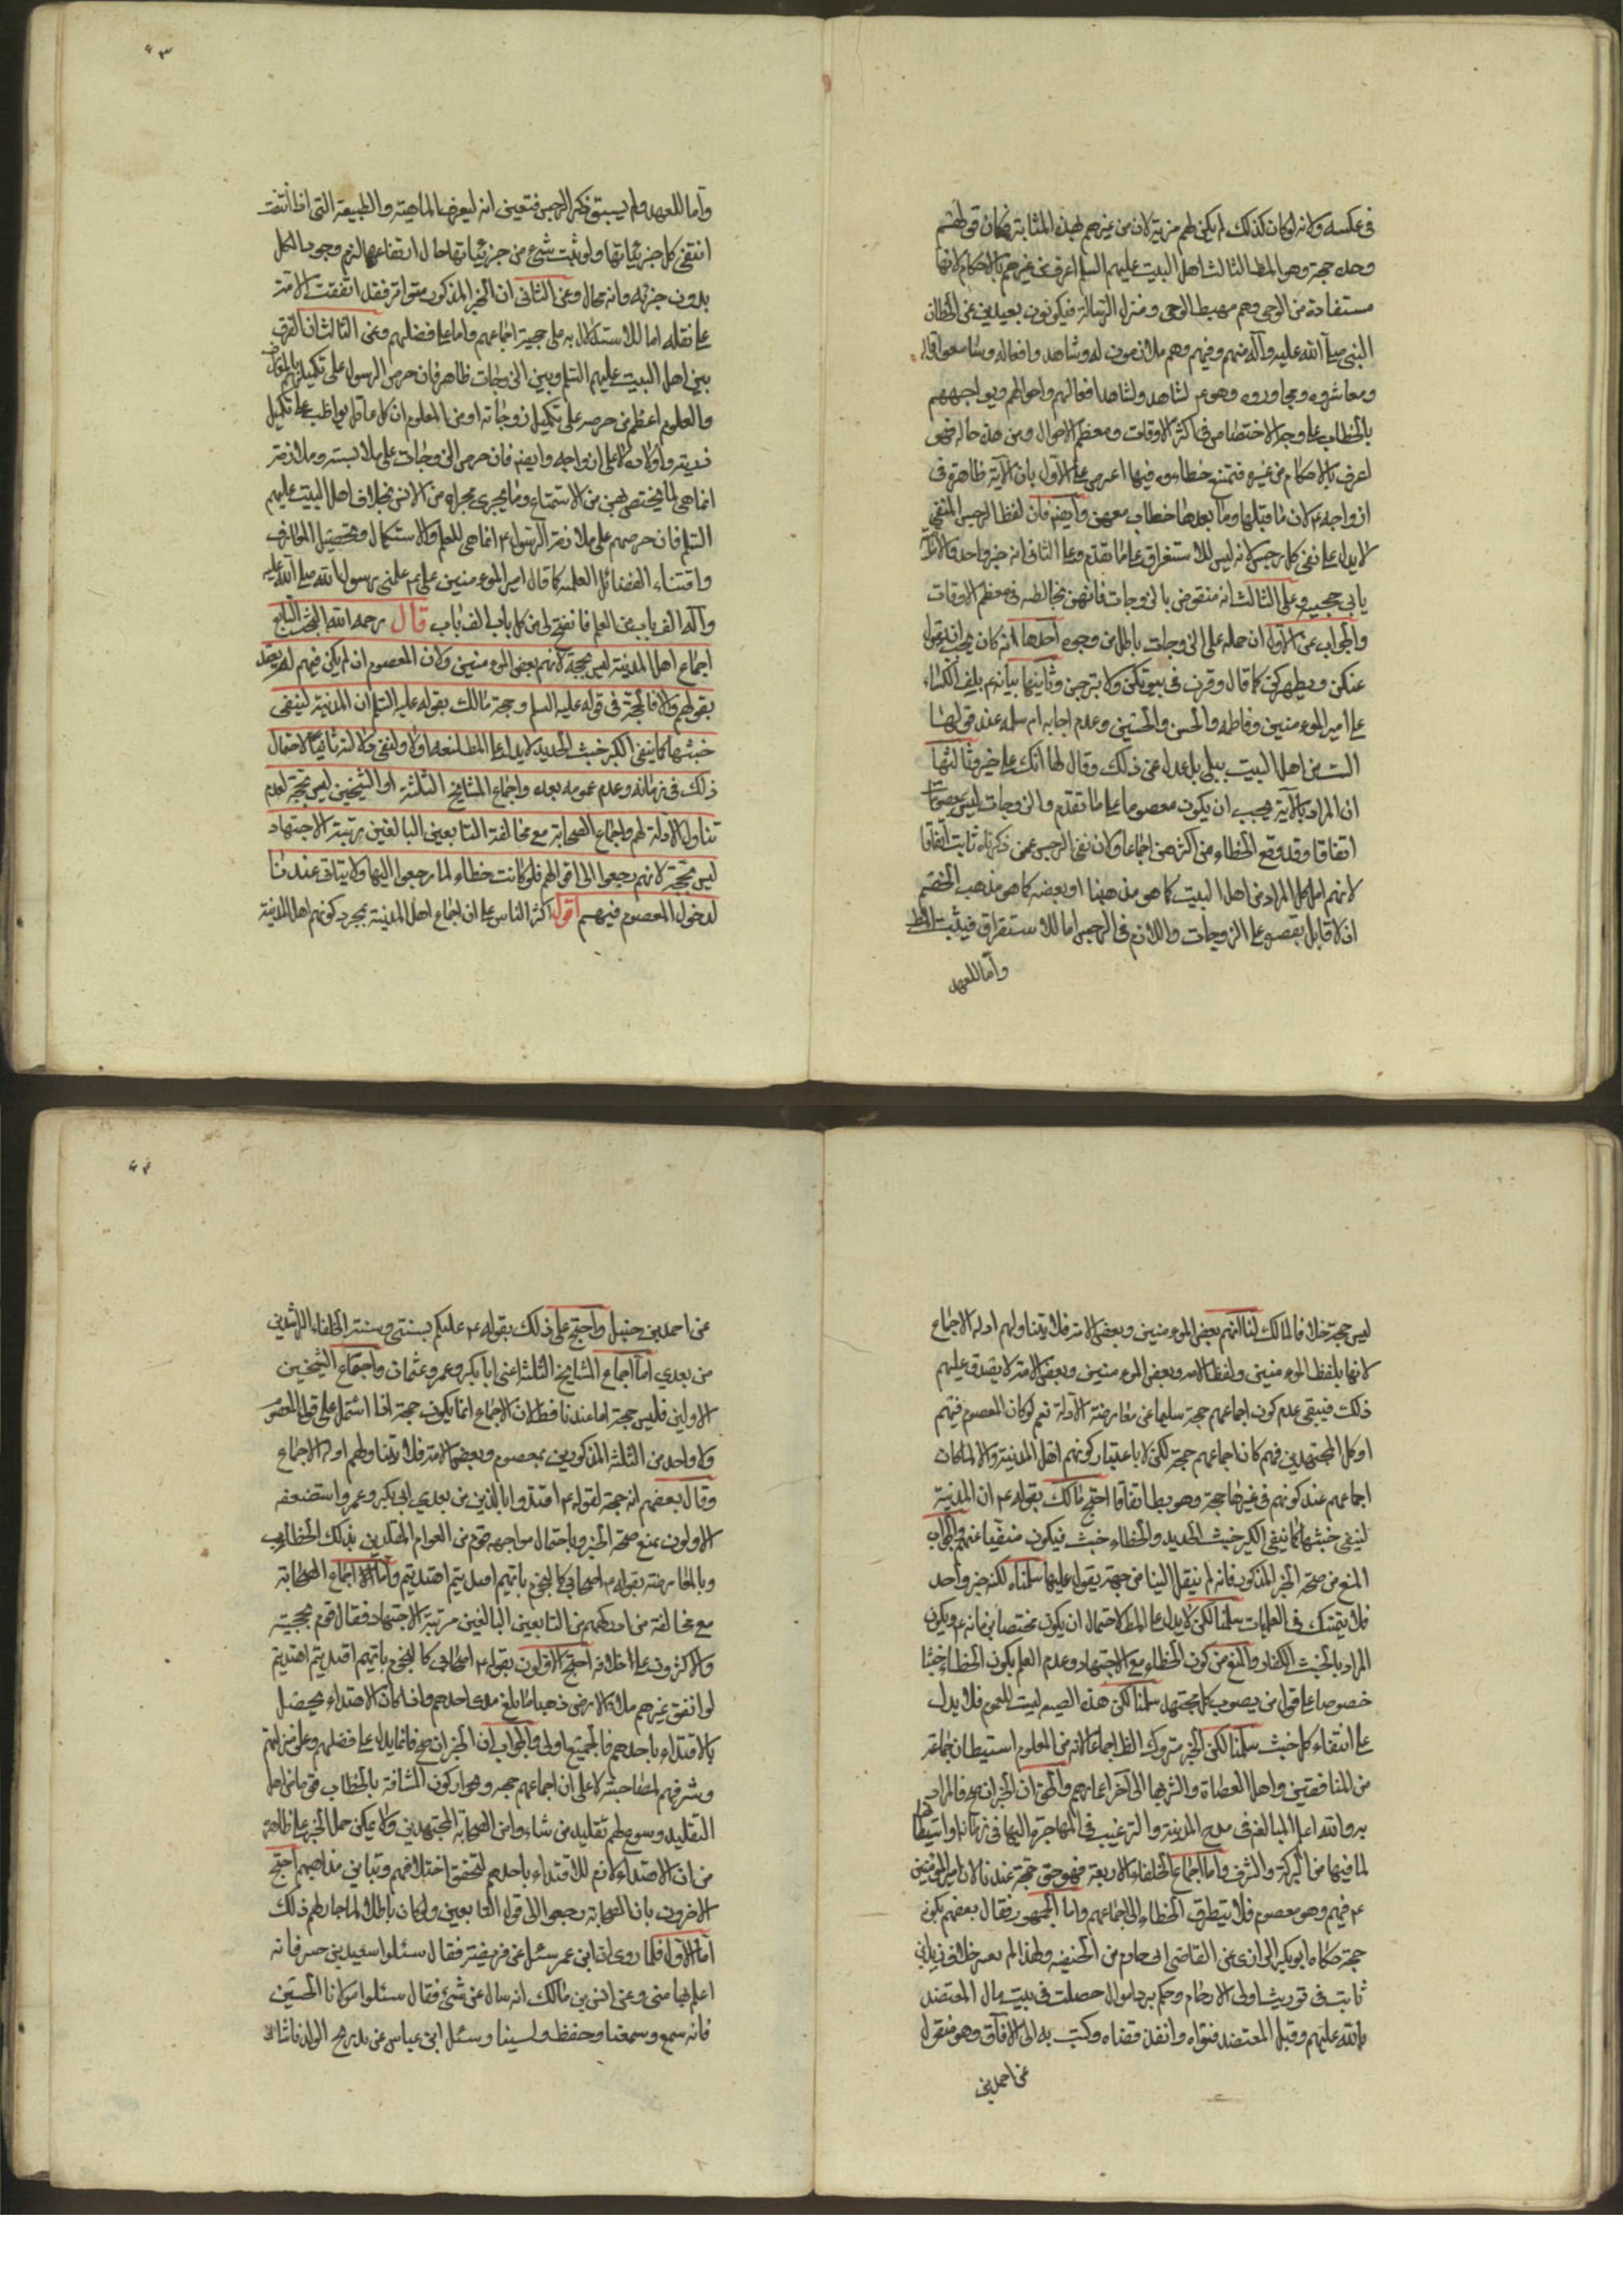 فى عكسه ولانه لو كان كذلك لم يكن لهم مزية لان من غيرهم بهذه المثابة فكان قولهم
وحده حجة وهو المط الثالث اهل البيت عليهم السلم اعرف من غيرهم بالاحكام لانها
مستفادة من الوحى وهم مهبط الوحى ومنزل الرسالة فيكونون بعيدين عن الخطا لان
النبى صلى الله عليه وآله منهم وفيهم وهم ملازمون له وشاهدوا افعاله وسامعوا اقواله
ومعاشروه ومجاوروه وهو يشاهد افعالهم واحوالهم ويواجههم
بالخطاب على وجه الاختصاص فى اكثر الاوقات ومعظم الاحوال ومن هذه حاله فهو
اعرف بالاحكام من غيره فيمتنع خطاءوه فيها اعترض على الاول بان الآية ظاهرة فى
ازواجه ۴ لان ما قبلها وما بعدها خطاب معهن وايضه فان لفظ الرجس المنفى
لا يدل على نفى كل رجس لانه ليس للاستغراق على ما تقدم وعلى الثانى انه خبر واحد
وعلى الثالث انه منقوض بالزوجات فانهن مخالطه فى معظم الاوقات
والجواب عن الاول ان حمله على الزوجات باطل من وجوه احدها انه كان يجب ان يقول
عنكن ويطهركن كما قال وقرن فى بيوتكن ولا تبرجن وثانيها بيانه ۴ بلف الكساء
على امير المومنين وفاطمه والحسن والحسين وعدم اجابه ام سلمه عند قولها
الست من اهل البيت ببلى بل عدل عن ذلك وقال لها انك على خير وثالثها
ان المراد بالآية يجب ان يكون معصوما على ما تقدم والزوجات ليس بمعصومات
اتفاقا وقد وقع الخطاء من اكثرهن اجماعا ولان نفى الرجس عمن ذكرناه ثابت اتفاقا
لانهم اما كل المراد من اهل البيت كما هو مذهبنا او بعضه كما هو مذهب الخصم
اذ لا قايل بقصره على الزوجات واللام فى الرجس اما للاستغراق فيثبت المط
واما للعهد
۶۳
واما للعهد ولم يسبق ذكر الرجس فتعين انه لتعريف الماهية والطبيعة التى اذا انتفت
انتفى كل جزئياتها ولو ثبت شىء من جزئياتها حال انتفاعها لزم وجود الكل
بدون جزئه وانه محال وعن الثانى ان الخبر المذكور متواتر فقد اتفقت الامة
على نقله اما للاستدلال به على حجية اجماعهم واما على فضلهم وعن الثالث ان الفرق
بين اهل البيت عليهم السلم وبين الزوجات ظاهر فان حرص الرسول على تكميلهم بالمعارف
والعلوم اعظم من حرصه على تكميل زوجاته اذ من المعلوم ان كل عاقل يواظب على تكميل
ذريته واولاده اعلى من ازواجه وايضه فان حرص الزوجات على ملابسته وملازمته
انما هى لما يختص بهن من الاستمتاع وما يجرى مجراه من الانس بخلاف اهل البيت عليهم
السلم فان حرصهم على ملازمة الرسول ۴ انما هى للعلم والاستكمال وتحصيل المعارف
واقتناء الفضائل العلميه كما قال امير المومنين على ۴ علمنى رسول الله صلى الله عليه
وآله الف باب من العلم فانفتح لى من كل باب الف باب قال رحمه الله البحث السابع
اجماع اهل المدينة ليس بحجة لانهم بعض المومنين ولان المعصوم ان لم يكن فيهم لم يعتد
بقولهم والا فالحجة فى قوله عليه السلم وحجة مالك بقوله عليه السلم ان المدينة لينفى
خبثها كما ينفى الكير خبث الحديد لا يدل على المط
ذلك فى زمانه وعدم عمومه بعده واجماع المشايخ الثلثة او الشيخين ليس بحجة لعدم
تناول الادلة لهم واجماع الصحابة مع مخالفة التابعين البالغين رتبة الاجتهاد
ليس بحجة لانهم رجعوا الى اقوالهم فلو كانت خطاء لما رجعوا اليها ولا يتاتى عندنا
لدخول المعصوم فيهم اقول اكثر الناس على ان اجماع اهل المدينة بمجرد كونهم اهل المدينة
ليس حجة خلافا لمالك لنا انهم بعض المومنين وبعض الامة فلا يتناولهم ادلة الاجماع
لانها بلفظ المومنين ولفظ الامه وبعض المومنين وبعض الامة لا يصدق عليهم
ذلك فيبقى عدم كون اجماعهم حجة سليما عن معارضة الادلة نعم لو كان المعصوم فيهم
او كل المجتهدين فيهم كان اجماعهم حجة لكن لا باعتبار كونهم اهل المدينة والا لما كان
اجماعهم عند كونهم فى غيرها حجة وهو بط اتفاقا احتج مالك بقوله ۴ ان المدينة
لينفى خبثها كما ينفى الكير خبث الحديد والخطاء خبث فيكون منفيا عنهم والجواب
المنع من صحة الخبر المذكور فانه لم ينقل الينا من جهة يقول عليها سلمناه لكنه خبر واحد
فلا يتمسك فى العلميات سلمنا لكن لا يدل على المط لاحتمال ان يكون مختصا بزمانه ۴ ويكون
المراد بالخبث الكفار والمنع من كون الخطاء مع الاجتهاد وعدم العلم بكون الخطاء خبثا
خصوصا على قول من يصوب كل مجتهد سلمنا لكن هذه الصيغه ليست للعموم فلا يدل
على انتفاء كل خبث سلمنا لكن الخبر متروك الظ اجماعا لانه من المعلوم استيطان جماعة
من المنافقين واهل العصاة والشر بها الى آخر اعمارهم والحق ان الخبر ان صح فالمراد
به والله اعلم المبالغه فى مدح المدينة والترغيب فى المهاجرة اليها فى زمانه واستيطانها
لما فيها من البركة والشرف واما اجماع الخلفاء الاربعة فهو حق حجة عندنا لان امير المومنين
۴ فيهم وهو معصوم فلا يتطرق الخطاء الى اجماعهم واما الجمهور فقال بعضهم بكونه
حجة حكاه ابو بكر الرازى عن القاضى ابى حازم من الحنفيه ولهذا لم يعتبر خلاف زيد بن
ثابت فى توريث اولى الارحام وحكم برد اموال حصلت فى بيت مال المعتضد
بالله عليهم وقبل المعتضد فتواه وانفذ قضاه وكتب به الى الآفاق وهو منقول
عن احمد بن
۶۴
عن احمد بن حنبل واحتج على ذلك بقوله ۴ عليكم بسنتى وسنة الخلفاء الراشدين
من بعدي اما اجماع المشايخ الثلثة اعنى ابا بكر وعمر وعثمان واجماع الشيخين
الاولين فليس حجة اما عندنا فظ لان الاجماع انما يكون حجة اذا اشتمل على قول المعصوم
ولا واحد من الثلثه المذكورين بمعصوم وبعض الامة فلا يتناولهم ادلة الاجماع
وقال بعضهم انه حجة لقوله ۴ اقتدوا بالذين من بعدي ابى بكر وعمر واستضعفه
الاولون بمنع صحة الخبر وباحتمال مواجهة قوم من العوام المقلدين بذلك الخطاب
وبالمعارضة بقوله ۴ اصحابى كالنجوم بايهم اقتديتم اهتديتم واما اجماع الصحابة
مع مخالفة من ادركهم من التابعين البالغين مرتبة الاجتهاد فقال قوم بحجيته
والاكثرون على خلافه احتج الاولون بقوله ۴ اصحابى كالنجوم بايهم اقتديتم اهتديتم
لو انفق غيرهم ملاء الارض ذهبا ما بلغ مد احدهم واذا كان الاهتداء يحصل
بالاقتداء باحدهم فالجميع اولى والجواب ان الخبر ان صح فانما يدل على فضلهم وعلو منزلتهم
وشرفهم لمصاحبته لا على ان اجماعهم حجه وهو اركون المشافة بالخطاب قوما من اهل
التقليد وسوغ لهم تقليد من شاءوا من الصحابة المجتهدين ولا يمكن حمل الخبر على ظاهره
من ان الاهتداء لازم للاقتداء باحدهم لتحقق اختلافهم وتباين مذاهبهم احتج
الاخرون بان الصحابة رجعوا الى قول التابعين ولو كان باطلا لما جاز لهم ذلك
اما الاول فلما روى ان ابن عمر سئل عن فريضة فقال سئلوا سعيد بن جبير فانه
اعلم بها منى وعن انس بن مالك انه سال عن شىء فقال سئلوا مولانا الحسن
فانه سمع وسمعنا وحفظ ونسينا وسئل ابن عباس عن نذر ذبح الولد فاشار